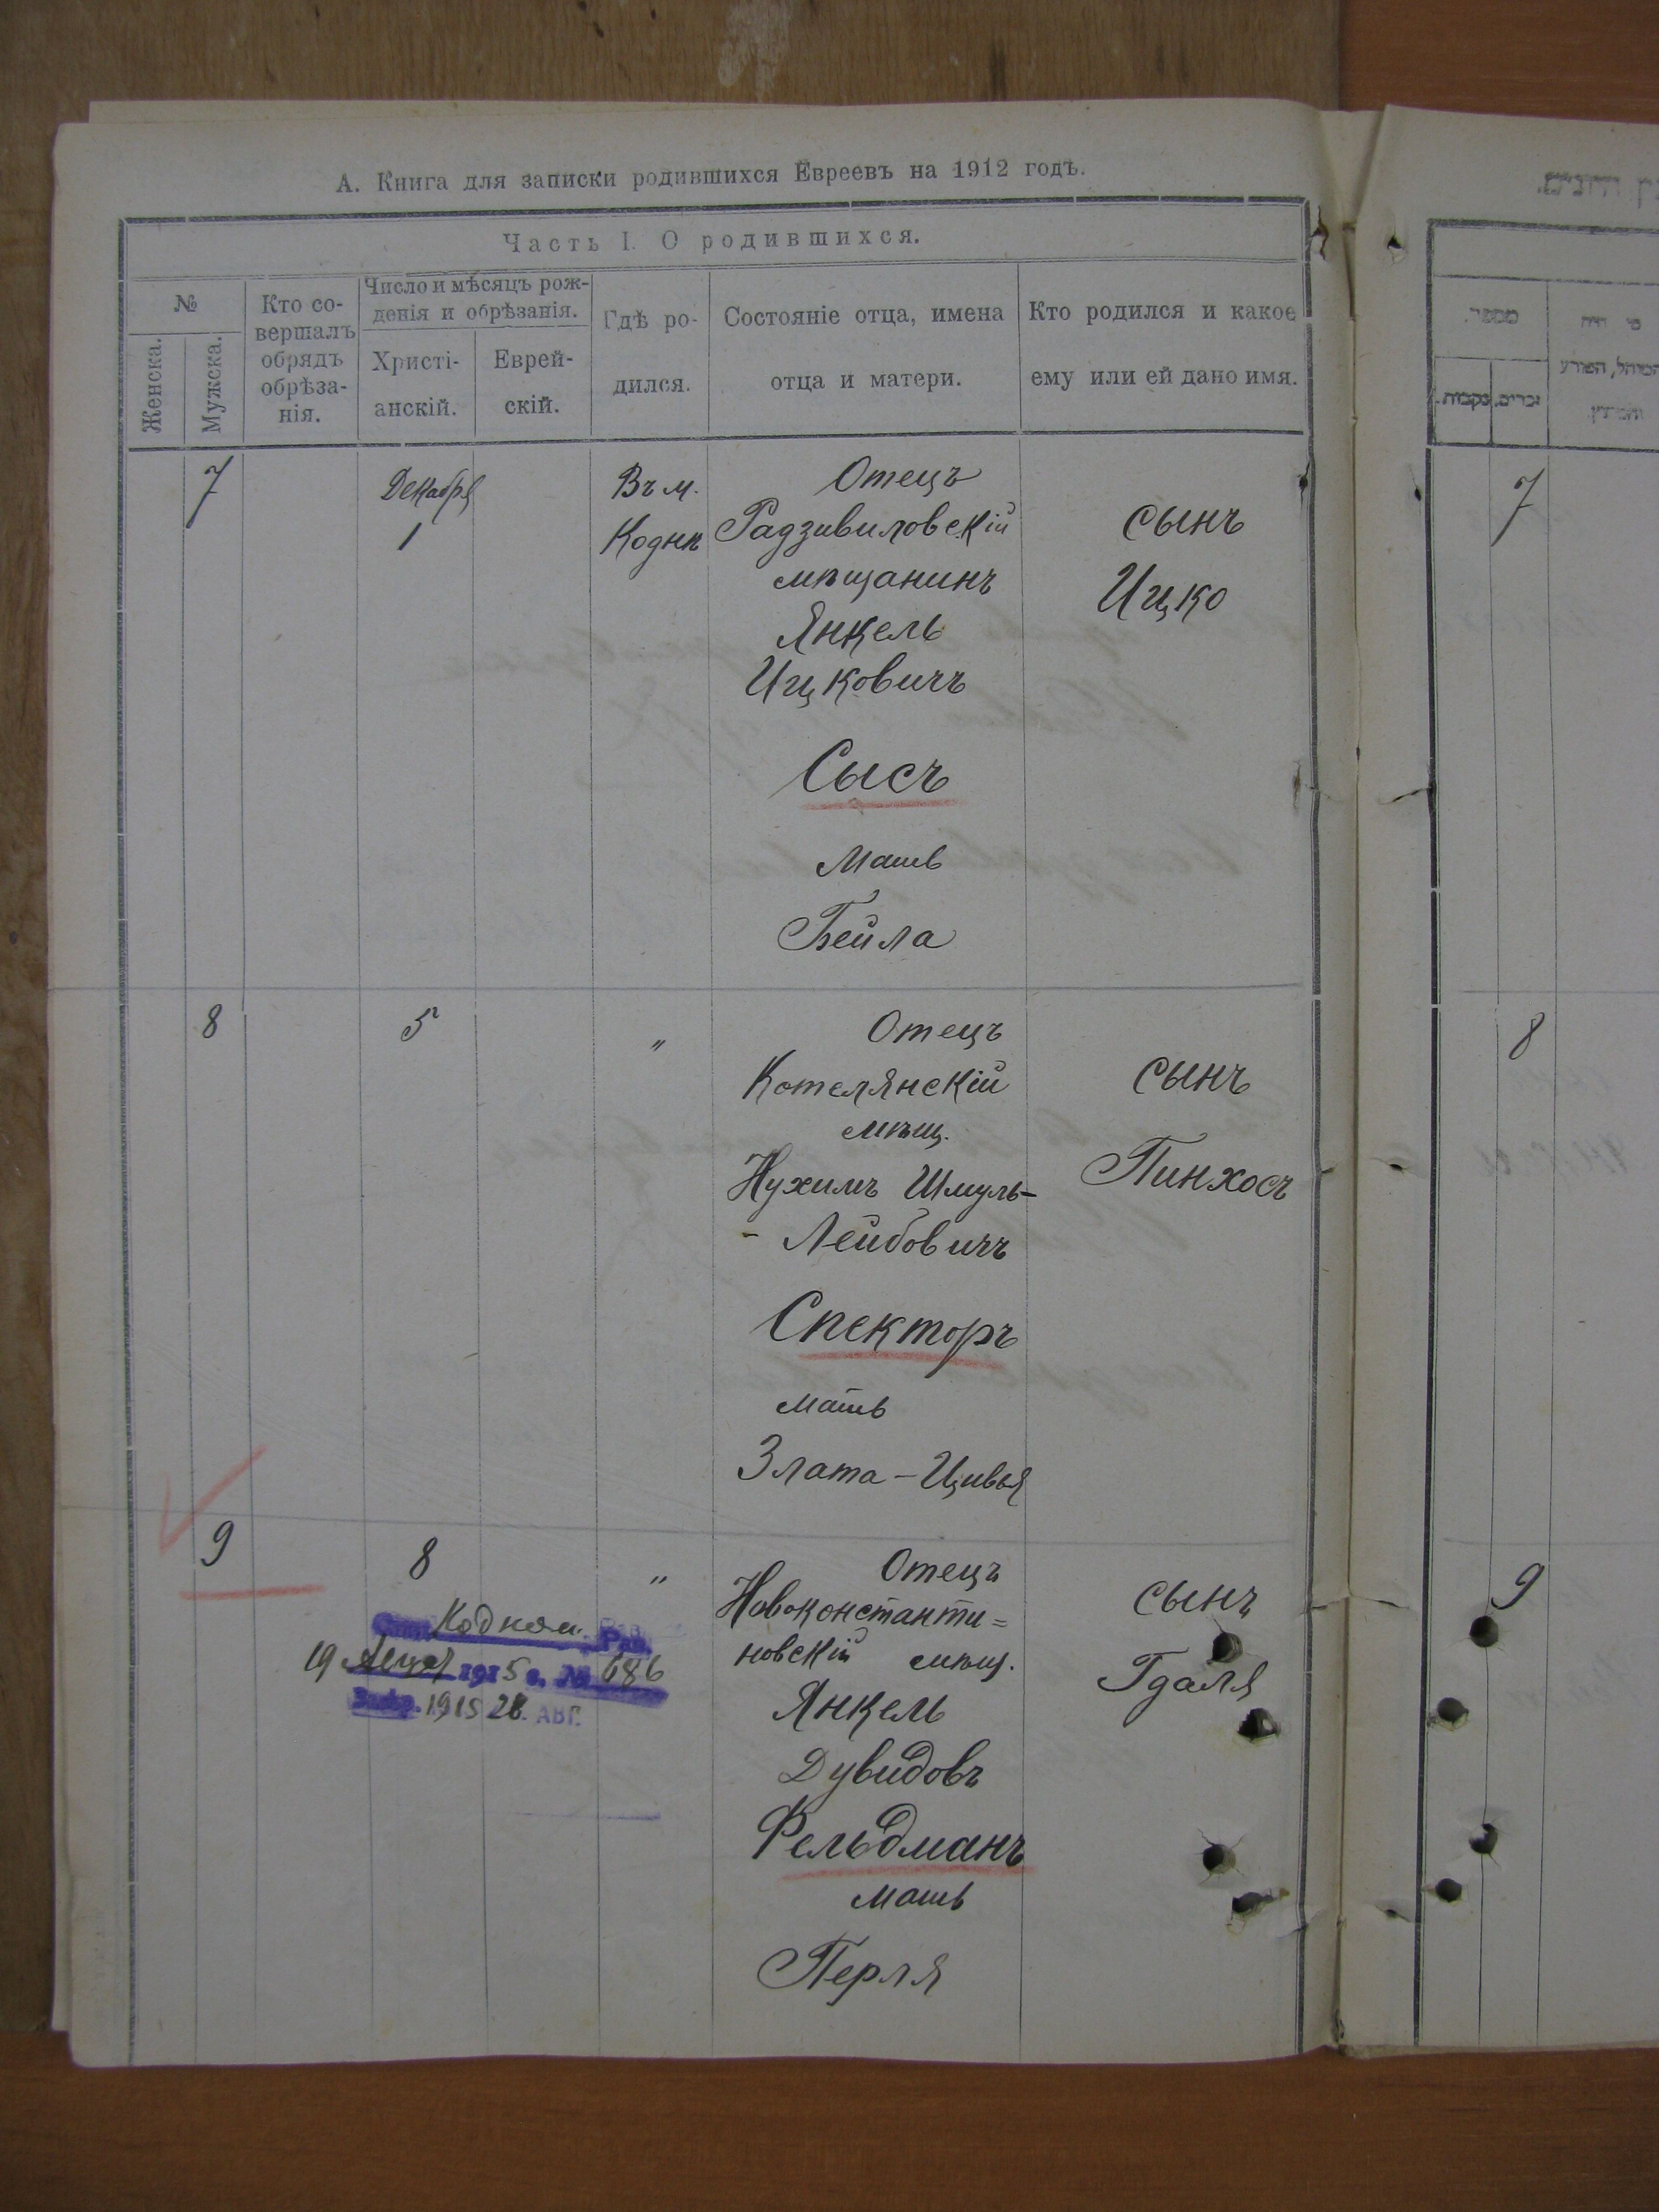 А. Книга для записки родившихся Евреевъ на 1912 годъ.
Часть I. О родившихся.
№
Женска.
Мужска.
Кто со-
вершалъ
обрядъ
обрѣза-
нія.
Число и мѣсяцъ рож-
денія и обрѣзанія.
Христі-
анскій.
Еврей-
скій.
Гдѣ ро-
дился.
Состояніе отца, имена
отца и матери.
Кто родился и какое
ему или ей дано имя.
7
Декабря
1
Въ м.
Коднѣ
Отецъ
Радзивиловскій
мѣщанинъ
Янкель
Ицковичъ
Сысъ
Мать
Бейла
сынъ
Ицко
8
5
"
Отецъ
Котелянскій
мѣщ.
Нухимъ Шмуль-
- Лейбовичъ
Спекторъ
мать
Злата - Цивья
сынъ
Пинхосъ
9
8
"
Отецъ
Новоконстанти=
новскій мѣщ.
Янкель
Дувидовъ
Фельдманъ
мать
Перля
сынъ
Гдаля
Коднян. Рав.
19 1915 г. № 686
1915 28 АВГ.
7
8
9
מספר.
זכרים.
נקבות.